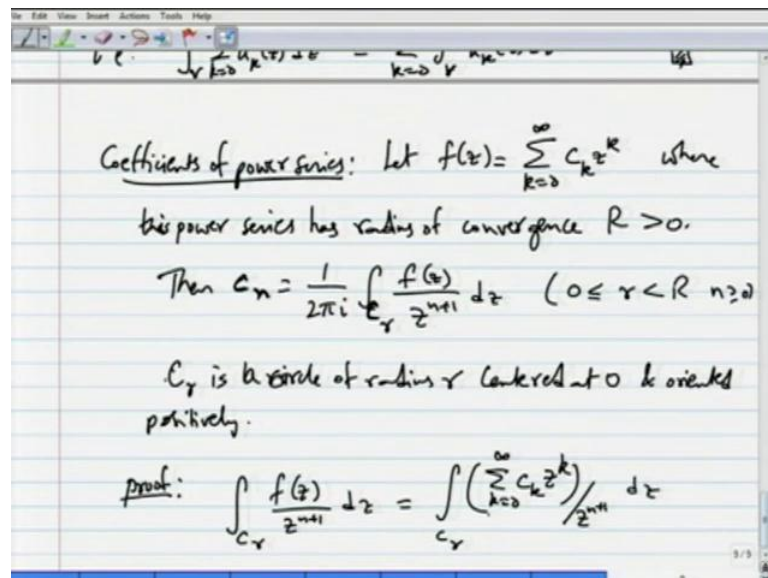 File Edit View Insert Actions Tools Help
i.e. ∫_γ ∑_{k=0} u_k(z) dz = ∑_{k=0} ∫_γ u_k
Coefficients of power series: Let f(z) = ∑_{k=0}^{∞} c_k z^k where
this power series has radius of convergence R > 0.
Then c_n = 1/(2πi) ∫_{C_r} f(z)/z^{n+1} dz (0 ≤ r < R n ≥ 0)
C_r is a circle of radius r centered at 0 & oriented
positively.
proof: ∫_{C_r} f(z)/z^{n+1} dz = ∫_{C_r} (∑_{k=0}^{∞} c_k z^k)/z^{n+1} dz